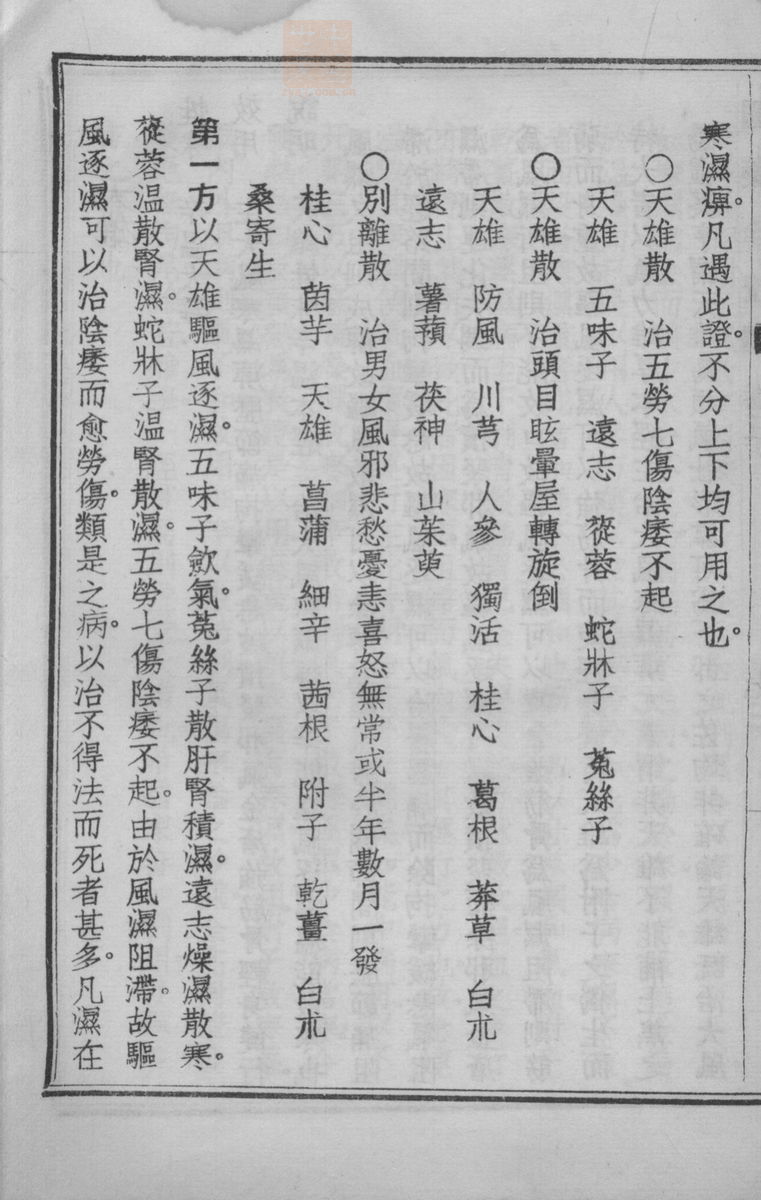 寒濕痹。凡遇此證。不分上下均可用之也。
○天雄散　治五勞七傷陰痿不起
天雄　五味子　遠志　蓯蓉　蛇牀子　菟絲子
○天雄散　治頭目眩暈屋轉旋倒
天雄　防風　川芎　人參　獨活　桂心　葛根　莽草　白朮
遠志　薯蕷　茯神　山茱萸
○別離散　治男女風邪悲愁憂恚喜怒無常或半年數月一發
桂心　茵芋　天雄　菖蒲　細辛　茜根　附子　乾薑　白朮
桑寄生
第一方以天雄驅風逐濕。五味子歛氣。菟絲子散肝腎積濕。遠志燥濕散寒。
蓯蓉溫散腎濕。蛇牀子溫腎散濕。五勞七傷陰痿不起。由於風濕阻滯。故驅
風逐濕可以治陰痿而愈勞傷。類是之病。以治不得法而死者甚多。凡濕在